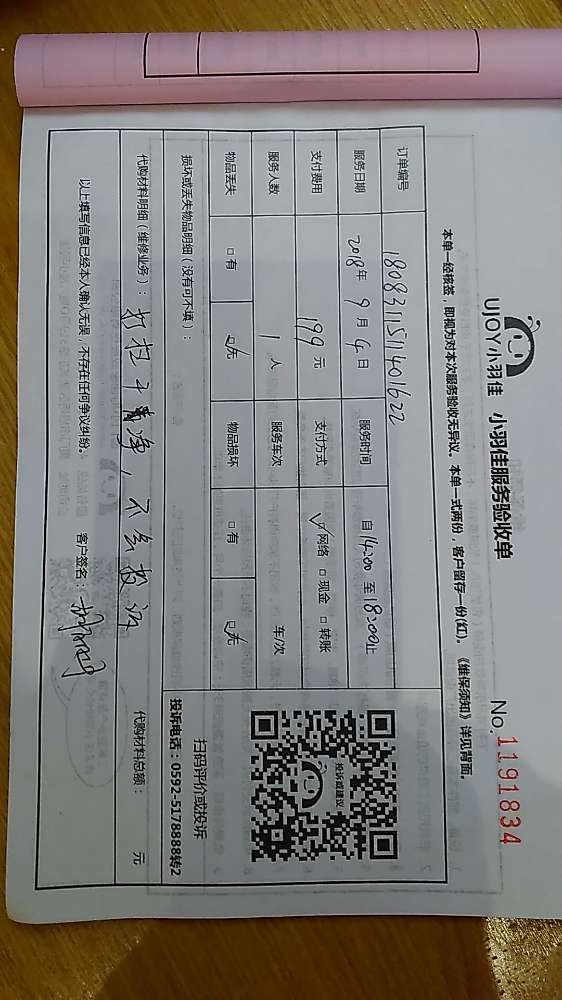 UJOY小羽佳 小羽佳服务验收单 No.1191834
本单一经核签，即视为对本次服务验收无异议。本单一式两份，客户留存一份(红)。《维保须知》详见背面。
订单编号 1808311511401622
服务日期 2018年9月4日 服务时间 自14:00至18:00止
支付费用 199元 支付方式 ☑网络 □现金 □转账
服务人数 1人 服务车次 车/次
物品丢失 □有 ☑无 物品损坏 □有 ☑无
损坏或丢失物品明细（没有可不填）：
投诉或建议
扫码评价或投诉
投诉电话：0592-5178888转2
代购材料明细（维修业务）：打扫不清净，不会投诉 代购材料总额： 元
以上填写信息已经本人确认无误，不存在任何争议纠纷。 客户签名：